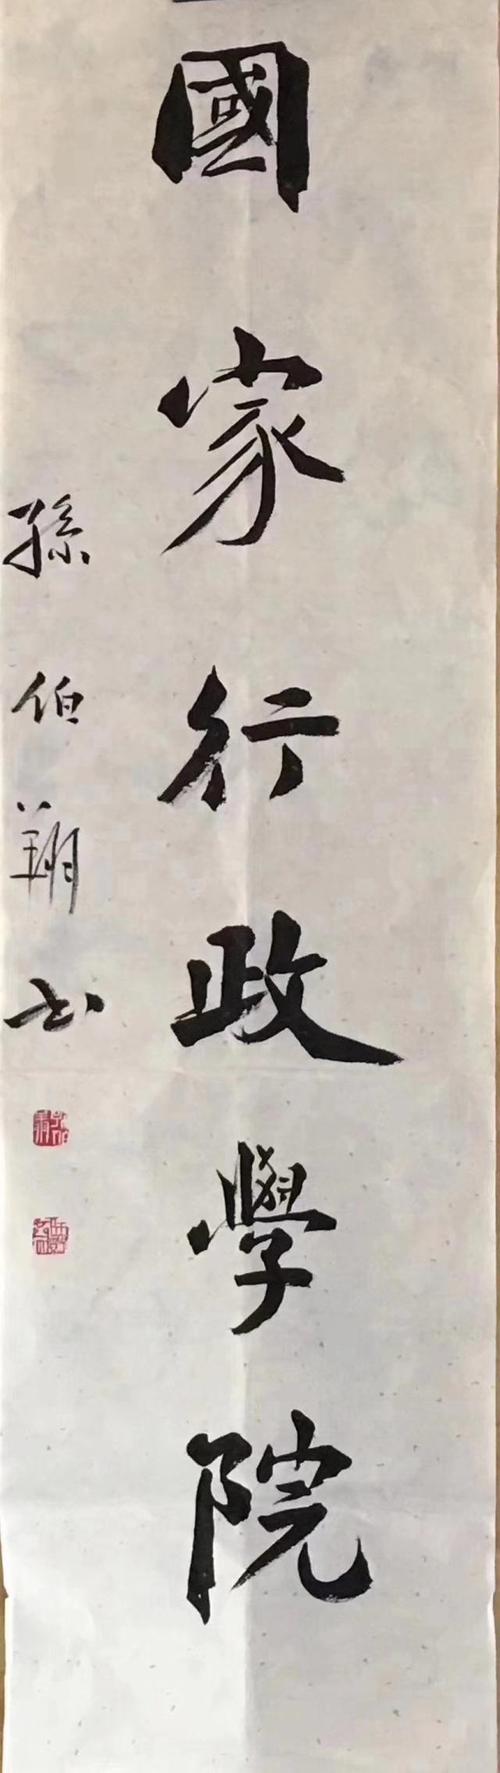 國家行政學院
孫伯翔书